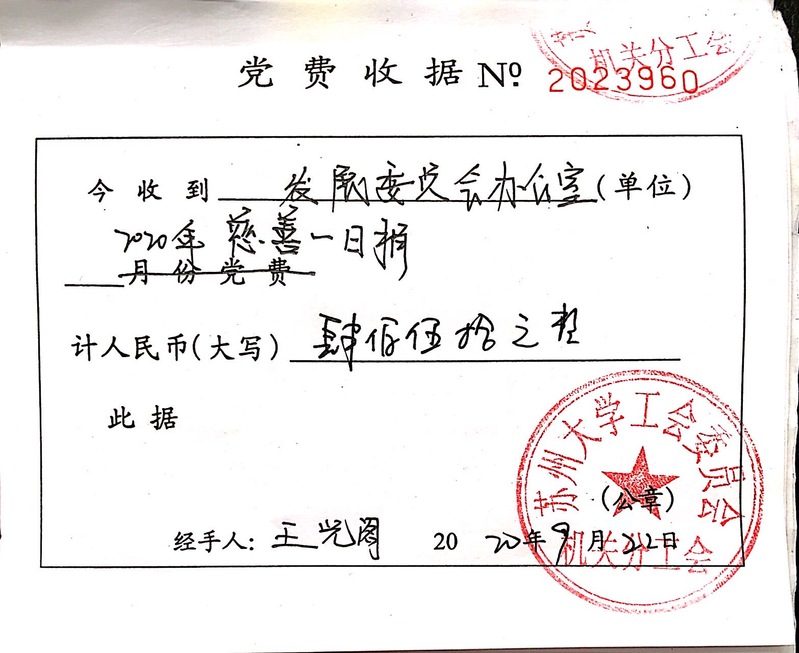 机关分工会
党费收据 № 2023960
今收到 发展委员会办公室(单位)
2020年慈善一日捐
月份党费
计人民币(大写) 肆佰伍拾元整
此据
苏州大学工会委员会
(公章)
经手人: 王 阁 2020年9月22日
机关分工会